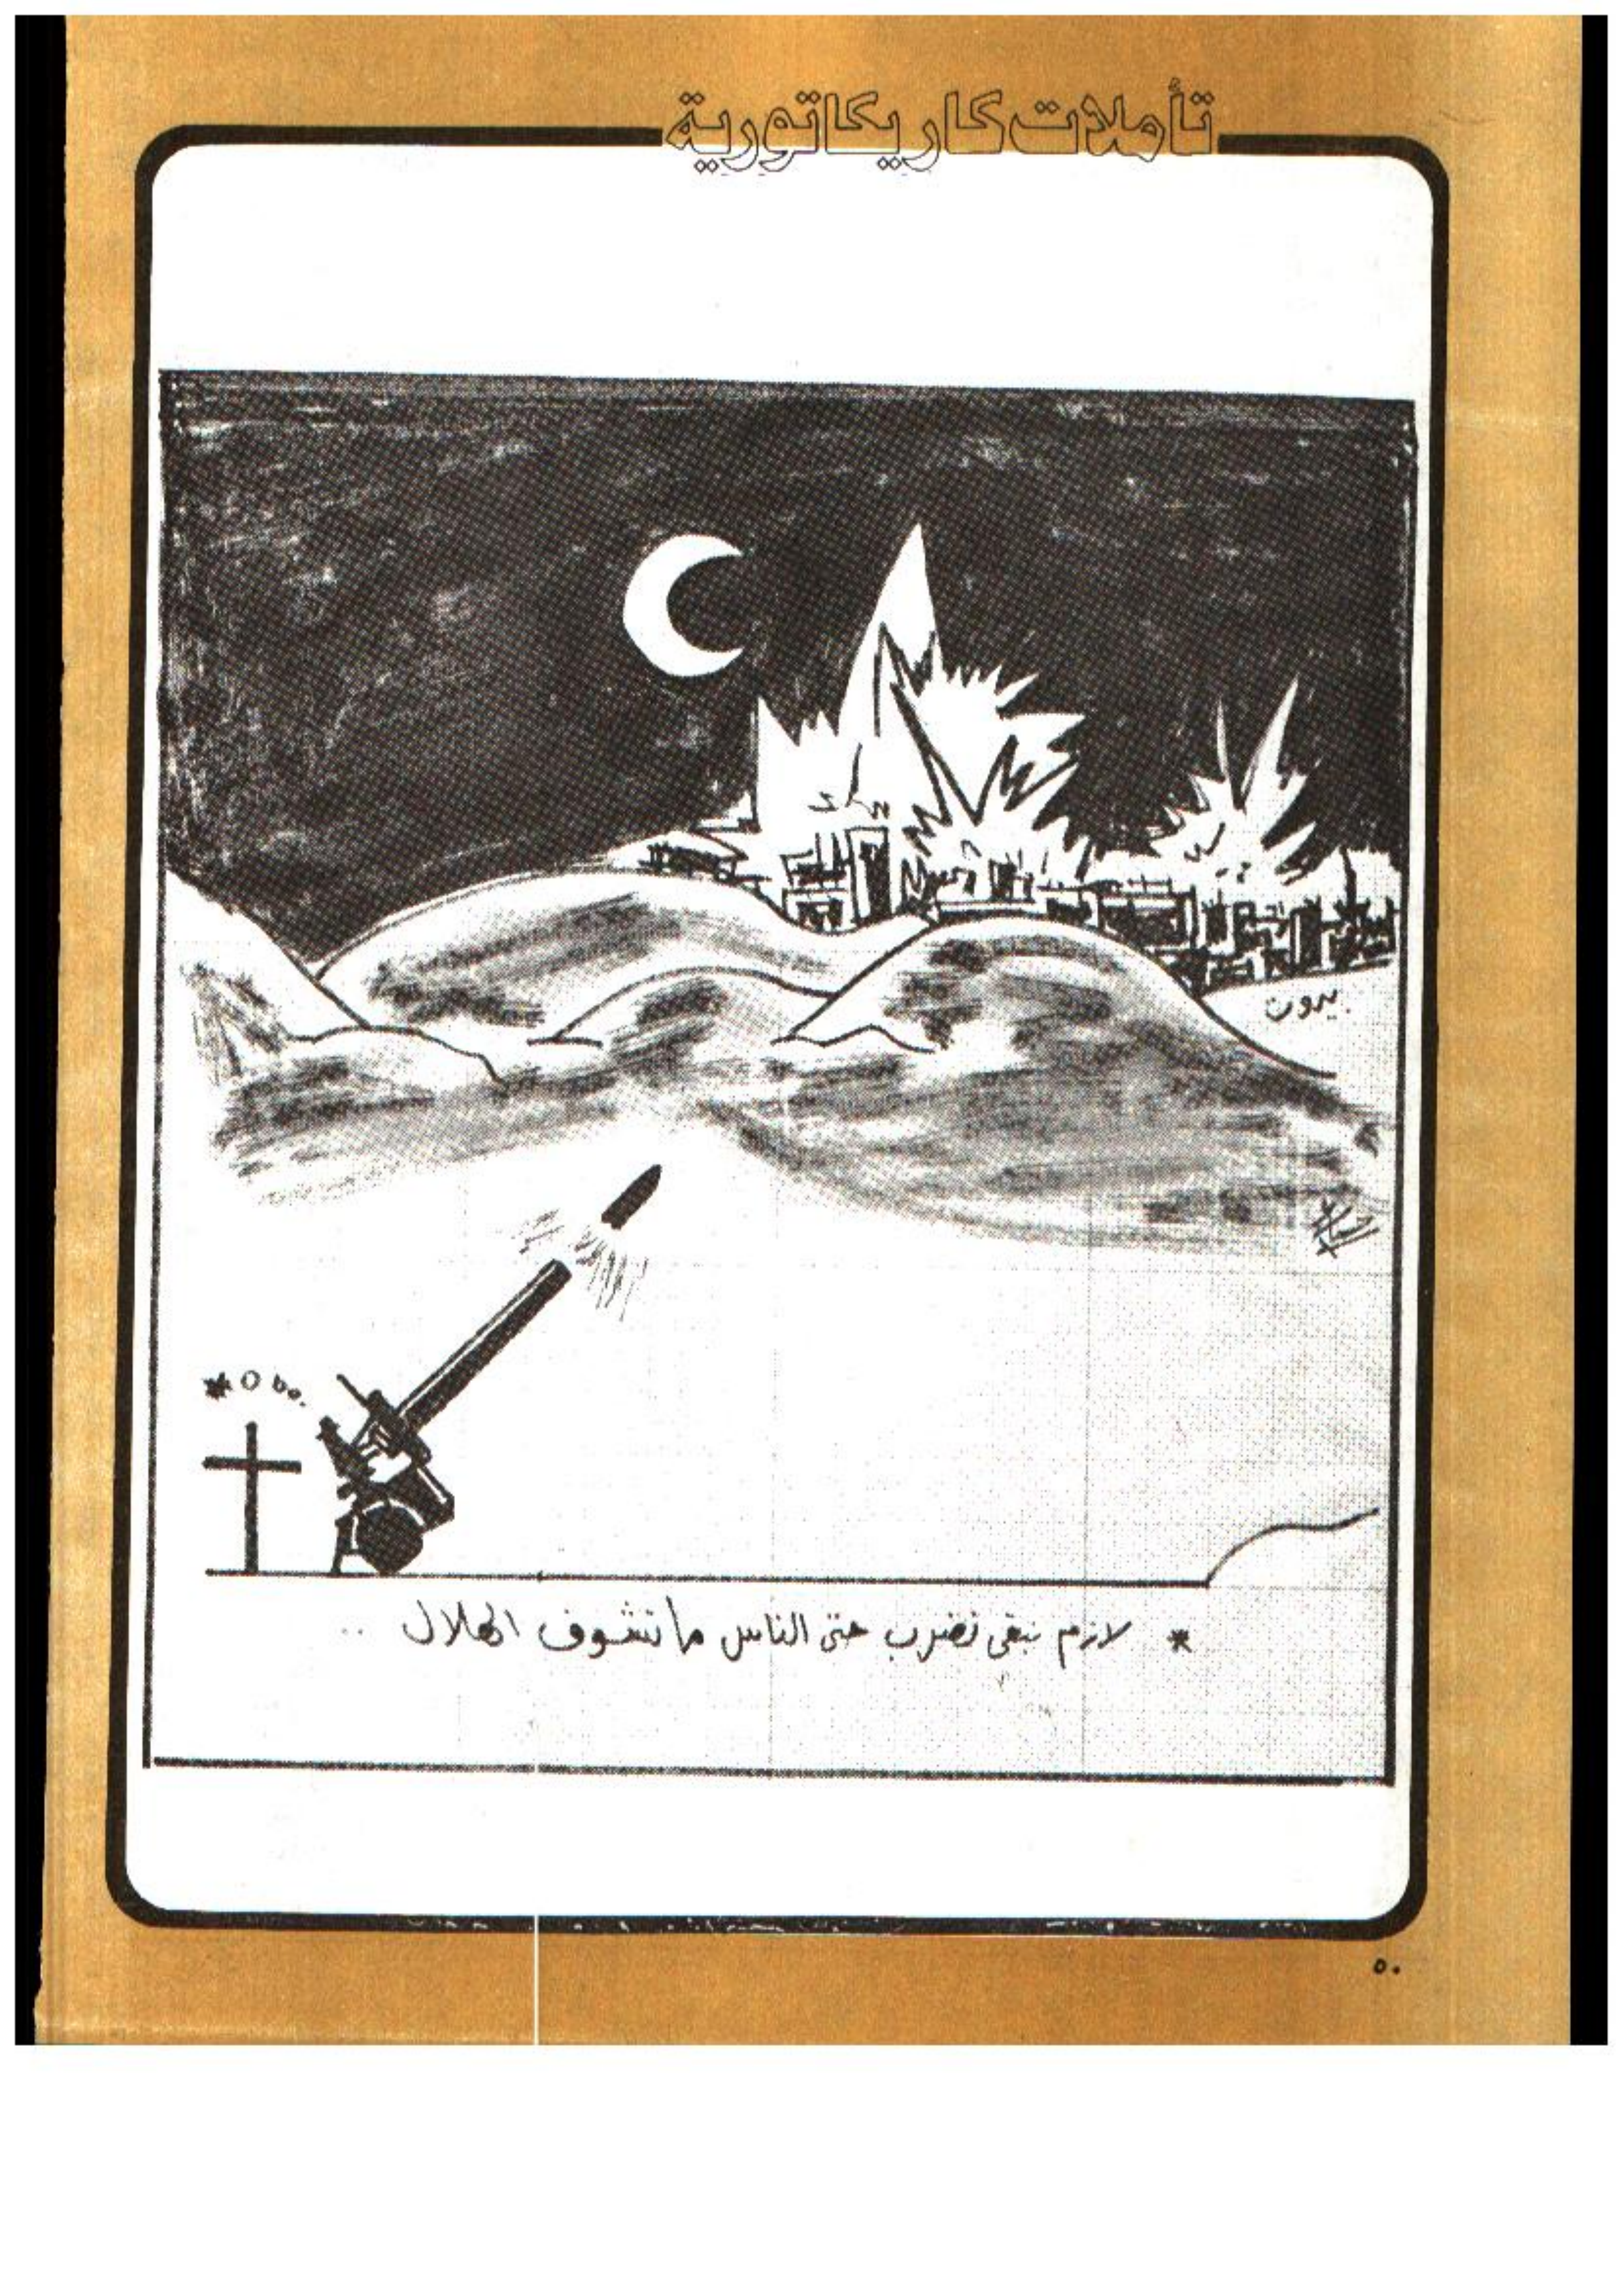 تأملات كاريكاتورية
بيروت
* لازم نبقى نضرب حتى الناس ما تشوف الهلال ..
٥٠